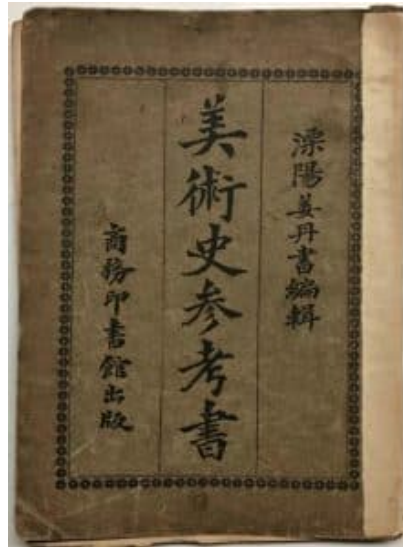 溧陽姜丹書編輯
美術史参考書
商務印書館出版